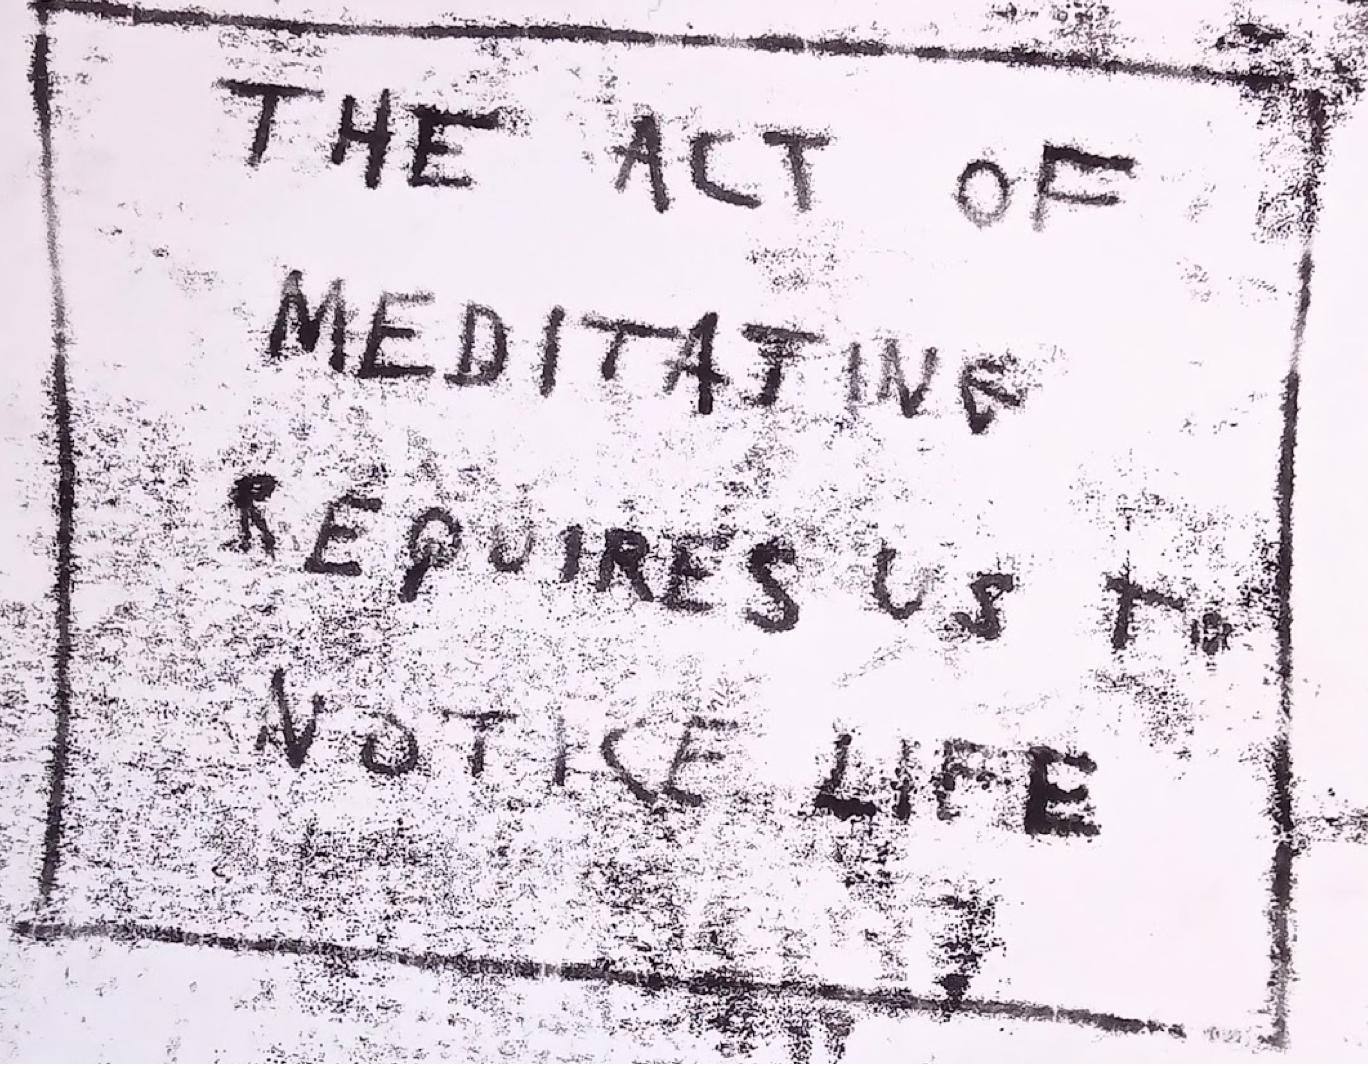 THE ACT OF
MEDITATING
REQUIRES US TO
NOTICE LIFE